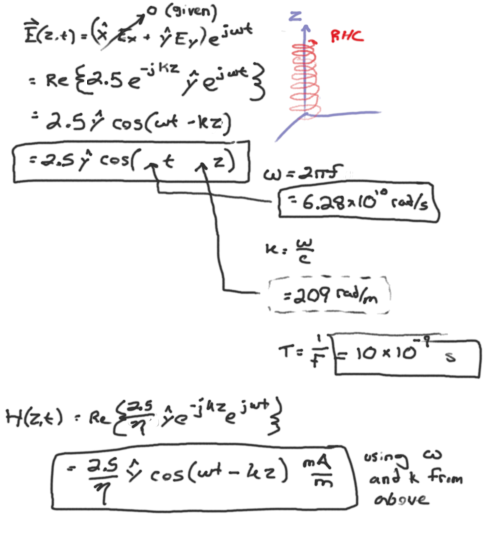 E⃗(z,t) = (x̂ Ex + ŷ Ey) e^jωt
0 (given)
= Re{2.5 e^-jkz ŷ e^jωt}
= 2.5 ŷ cos(ωt - kz)
= 2.5 ŷ cos( t z)
z
RHC
ω = 2πf
= 6.28×10^10 rad/s
k = ω/c
= 209 rad/m
T = 1/f = 10 × 10^-9 s
H(z,t) = Re{2.5/η ŷ e^-jkz e^jωt}
= 2.5/η ŷ cos(ωt - kz) mA/m
using ω
and k from
above